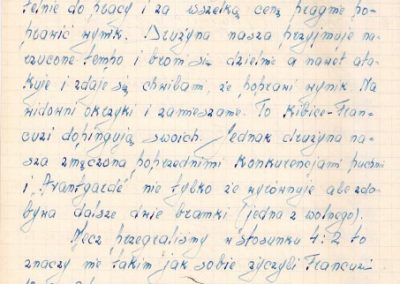 telnie do pracy i za wszelką cenę pragnie po-
prawić wynik. Drużyna nasza przyjmuje na-
rzucone tempo i broni się dzielnie a nawet ata-
kuje i zdaje się chwilami, że poprawi wynik. Na
widowni okrzyki i zamieszanie. To Kibice-Fran-
cuzi dopingują swoich. Jednak drużyna na-
sza zmęczona poprzednimi konkurencjami puchnie
i "Avantgarde" nie tylko że wyrównuje ale zdo-
bywa dalsze dwie bramki (jedna z wolnego).
Mecz przegraliśmy w stosunku 4:2 to
znaczy nie takim jak sobie życzyli Francuzi